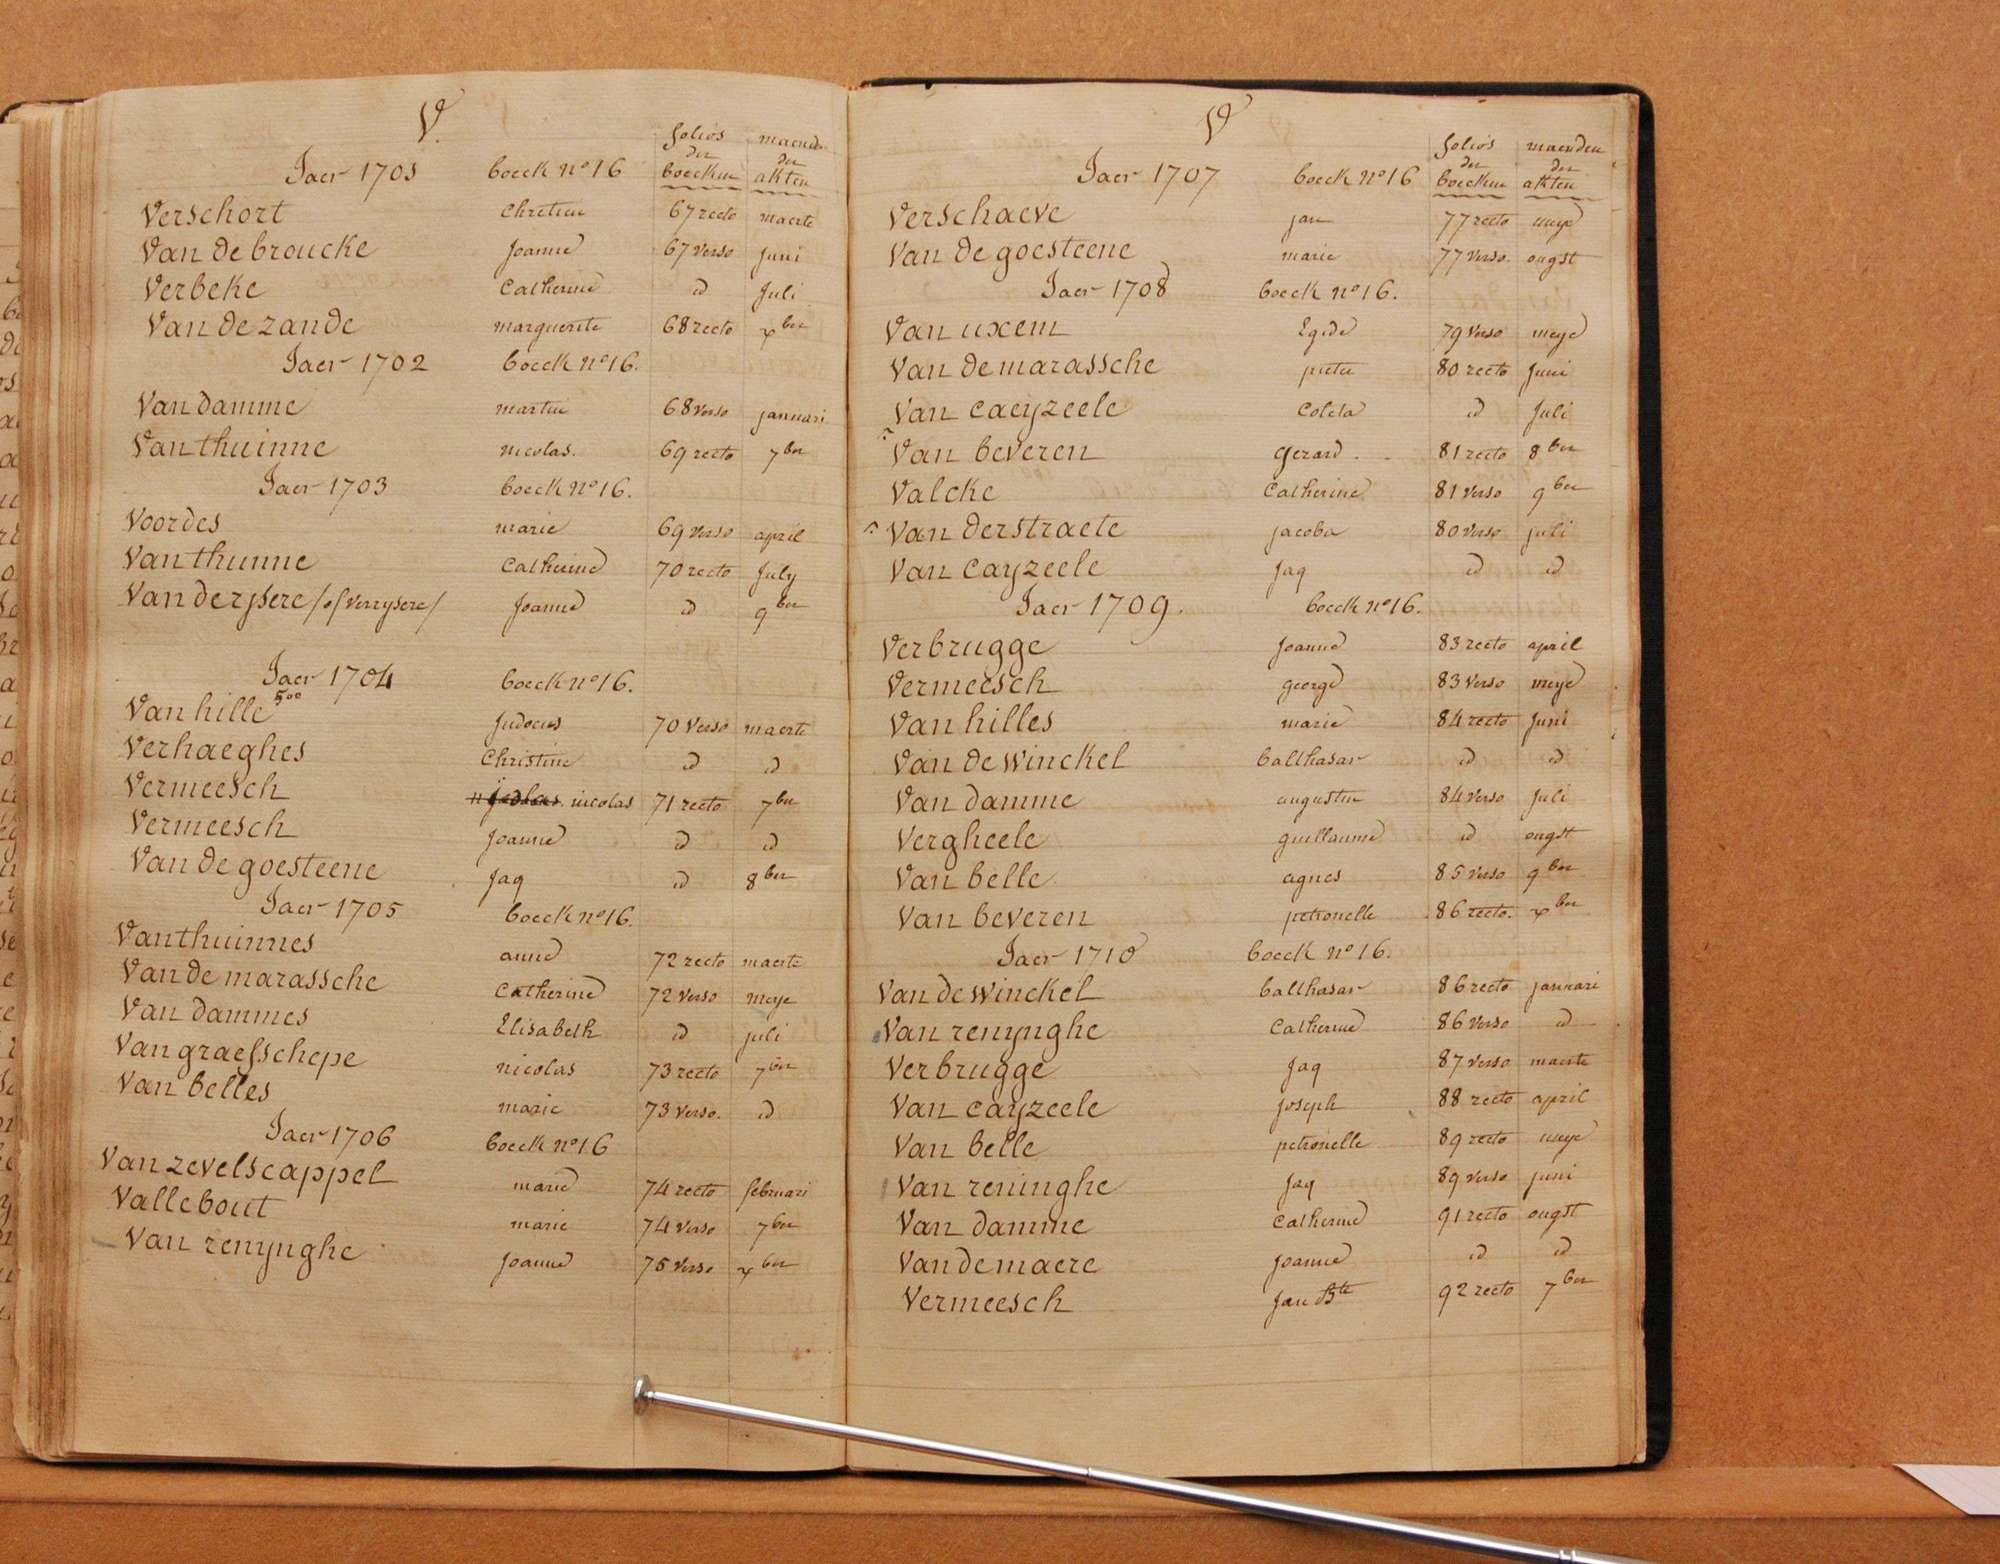 V.
folios maenden
der der
Jaer 1701 boeck n° 16 boecken akten
Verschort Chretien 67 recto maerte
Van de broucke Joanne 67 verso Juni
Verbeke Catherine id Juli
Van de zande marguerite 68 recto xber
Jaer 1702 boeck n° 16.
Van damme martin 68 verso januari
Van thuinne nicolas. 69 recto 7ber
Jaer 1703 boeck n° 16.
Voordes marie 69 verso april
Van thunne Catherine 70 recto July
Van derysere /of Verrysere/ Joanne id 9ber
Jaer 1704 boeck n° 16.
Van hille Judocus 70 verso maerte
Verhaeghes Christine id id
Vermeesch nicolas 71 recto 7ber
Vermeesch Joanne id id
Van de goesteene Jaq id 8ber
Jaer 1705 boeck n° 16.
Van thuinnes anne 72 recto maerte
Van de marassche Catherine 72 verso meye
Van dammes Elisabeth id juli
Van graefschepe nicolas 73 recto 7ber
Van belles marie 73 verso. id
Jaer 1706 boeck n° 16
Van zevelscappel marie 74 recto februari
Vallebout marie 74 verso 7ber
Van renynghe Joanne 75 verso xber
V
folios maenden
der der
Jaer 1707 boeck n° 16 boecken akten
Verschaeve jan 77 recto meye
Van de goesteene marie 77 verso. ougst
Jaer 1708 boeck n° 16.
Van uxem Egide 79 verso meye
Van de marassche pieter 80 recto Juni
Van caeyzeele Coleta id Juli
Van beveren gerard 81 recto 8ber
Valcke Catherine 81 verso 9ber
Van derstraete jacoba 80 verso juli
Van cayzeele Jaq id id
Jaer 1709. boeck n° 16.
Verbrugge Joanne 83 recto april
Vermeesch george 83 verso meye
Van hilles marie 84 recto Juni
Van de winckel balthasar id id
Van damme augustin 84 verso Juli
Vergheele guillaume id ougst
Van belle agnes 85 verso 9ber
Van beveren petronelle 86 recto. xber
Jaer 1710 boeck n° 16.
Van de winckel balthasar 86 recto januari
Van renynghe Catherine 86 verso id
Verbrugge Jaq 87 verso maerte
Van cayzeele Joseph 88 recto april
Van belle petronelle 89 recto meye
Van reninghe Jaq 89 verso juni
Van damme Catherine 91 recto ougst
Van de maere Joanne id id
Vermeesch Jan Bte 92 recto 7ber